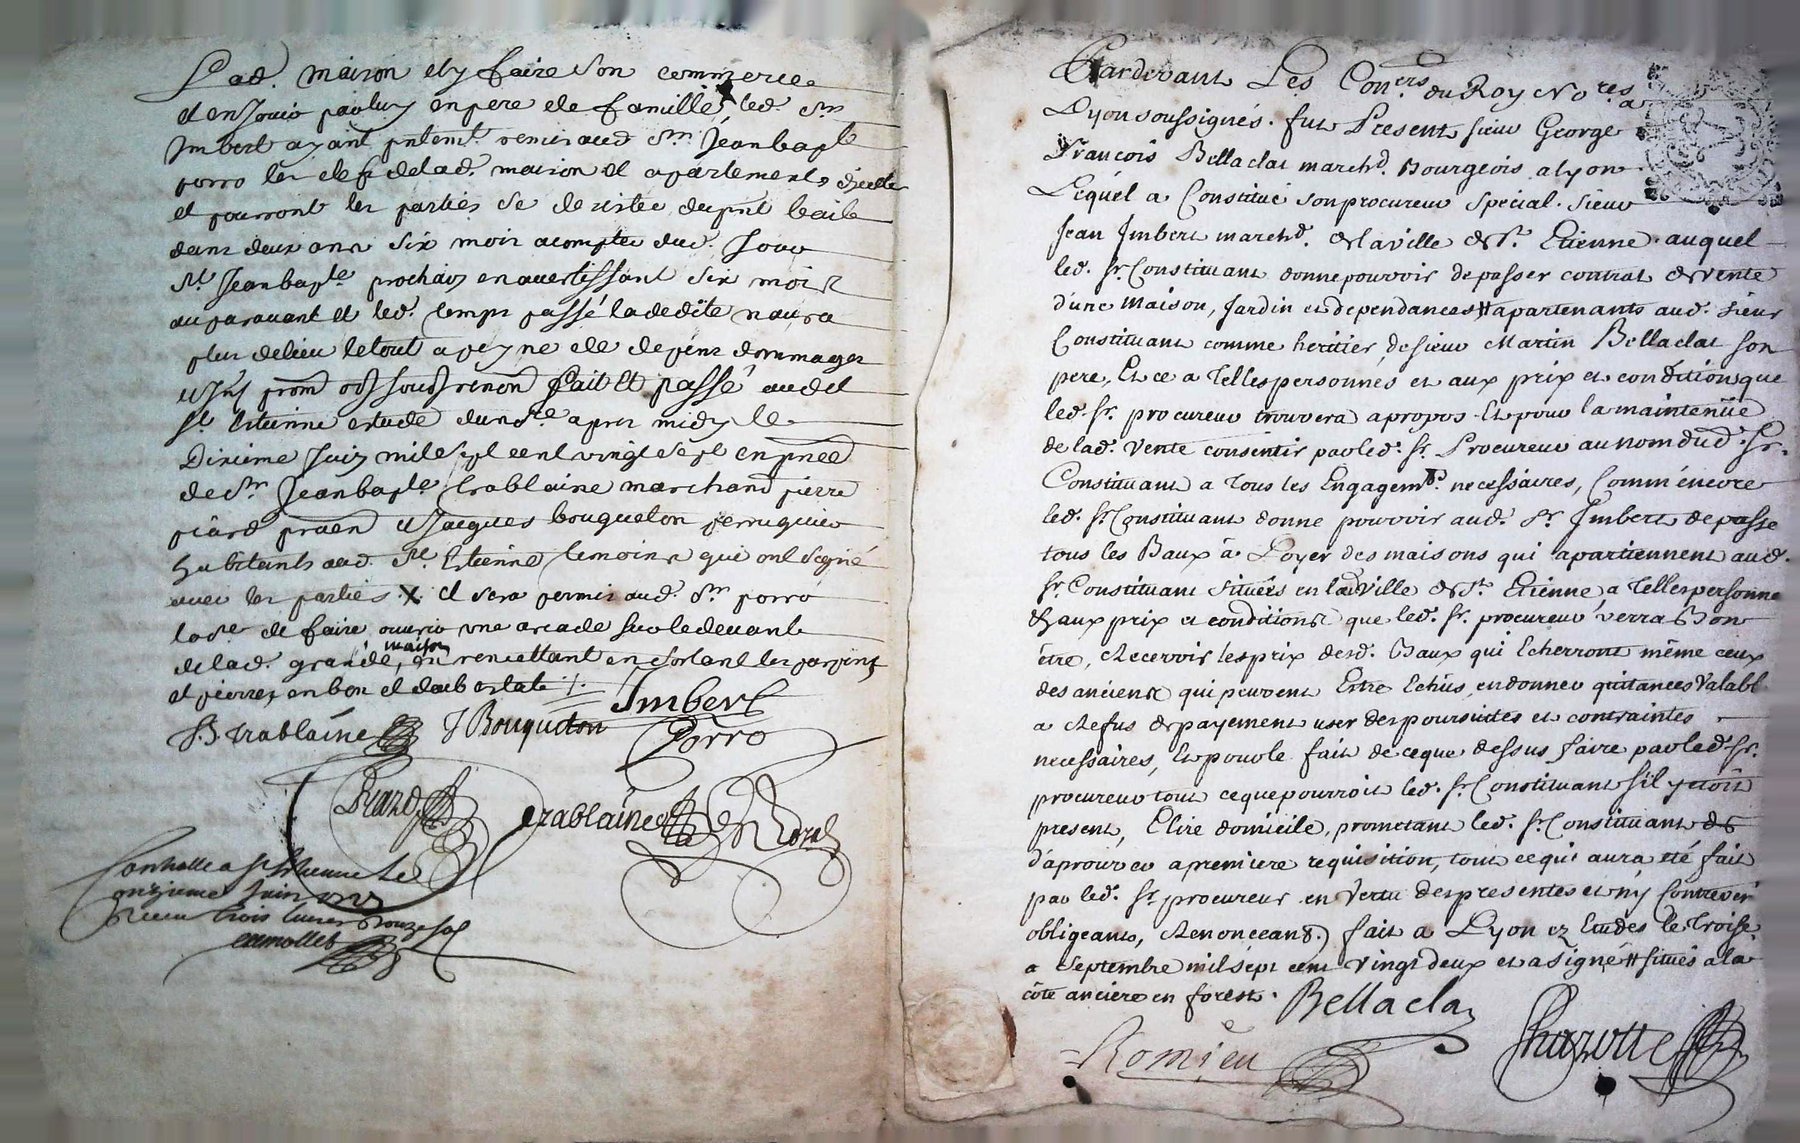 Lad. maison et y faire son commerce
et en jouir par luy en pere de famille, led. Sr
Imbert ayant pntemt. remis aud. Sr. Jean bapte
porro les clefs de lad. maison et apartements d'icelle
et pourront les parties se desister du pnt bail
dans deux ans six mois a compter dud. jour
St. Jean bapte. prochain en avertissant six mois
auparavant et led. temps passé la dedite n'aura
plus de lieu le tout a peyne de depens dommages
fait et passé aud.
St. Etienne estude du nore. apres midy le
Dixieme Juin mil sept cent vingt sept en pnce
de Sr. Jean bapte. trablaine marchand pierre
piard praen et Jacques bouqueton perruquier
habitants aud. St. Etienne temoins qui ont signé
avec les parties X il sera permis aud. Sr. porro
de faire ouvrir une arcade sur le devant
de lad. grande maison en remettant en sortant les
et pierres en bon et deub estat
Imbert
Trablaine J Bouqueton Porro
Piard trablaine
Conthrollé a St. Etienne le
onzieme Juin 1727
Receu trois livres douze sols
Pardevant Les Coners. du Roy Nores. a
Lyon soussignés. fut Present sieur George
François Bellaclat marchd. Bourgeois a Lyon
Lequel a Constitué son procureur special. sieur
Jean Imbert marchd. de la ville de St. Etienne. auquel
led. Sr. Constituant donne pouvoir de passer contrat de vente
d'une maison, Jardin et dependances # apartenants aud. sieur
Constituant comme heritier de sieur Martin Bellaclat son
pere, Et ce a telles personnes et aux prix et condition que
led. Sr. procureur trouvera apropos. Et pour la maintenüe
de lad. vente consentir par led. Sr. Procureur au nom dud. Sr.
Constituant a tous les Engagemts. necessaires, Comm'encore
led. Sr. Constituant donne pouvoir aud. Sr. Imbert de passe
tous les Baux a Loyer des maisons qui apartiennent aud.
Sr. Constituant situées en lad. ville de St. Etienne, a telles personne
& aux prix et conditions que led. Sr. procureur verra Bon
être, Recevoir les prix desd. Baux qui Echerront même ceux
des anciens qui peuvent Estre Echus, en donner quitances Valabl.
a Refus de payement user des poursuittes et contraintes
necessaires, Et pour le fait de ce que dessus faire par led. Sr.
procureur tout ce que pourroit led. Sr. Constituant s'il y etoit
present, Elire domicile, prometant led. Sr. Constituant de
d'aprouver a premiere requisition, tout ce qui aura eté fait
par led. Sr. procureur en Vertu des presentes et n'y Contrevenir
obligeant, Renonceant &.) fait a Lyon ez Etudes le Troise.
a Septembre mil sept cent vingt deux et a signé # situés a la
côte anciere en forest. Bellaclat
Romieu Chazotte